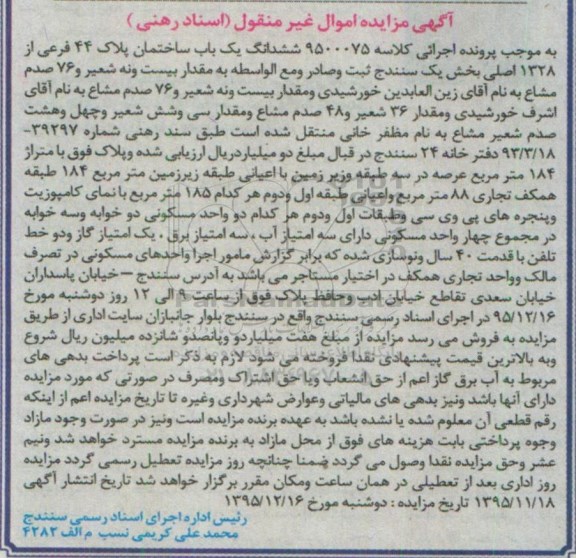 آگهی مزایده اموال غیر منقول (اسناد رهنی)
به موجب پرونده اجرائی کلاسه ۹۵۰۰۰۷۵ ششدانگ یک باب ساختمان پلاک ۴۴ فرعی از
۱۳۲۸ اصلی بخش یک سنندج ثبت وصادر ومع الواسطه به مقدار بیست ونه شعیر و۷۶ صدم
مشاع به نام آقای زین العابدین خورشیدی ومقدار بیست ونه شعیر و۷۶ صدم مشاع به نام آقای
اشرف خورشیدی ومقدار ۳۶ شعیر و۴۸ صدم مشاع ومقدار سی وشش شعیر وچهل وهشت
صدم شعیر مشاع به نام مظفر خانی منتقل شده است طبق سند رهنی شماره ۳۹۲۹۷-
۹۳/۳/۱۸ دفتر خانه ۲۴ سنندج در قبال مبلغ دو میلیاردریال ارزیابی شده وپلاک فوق با متراژ
۱۸۴ متر مربع عرصه در سه طبقه وزیر زمین با اعیانی طبقه زیرزمین متر مربع ۱۸۴ طبقه
همکف تجاری ۸۸ متر مربع واعیانی طبقه اول ودوم هر کدام ۱۸۵ متر مربع با نمای کامپوزیت
وپنجره های پی وی سی وطبقات اول ودوم هر کدام دو واحد مسکونی دو خوابه وسه خوابه
در مجموع چهار واحد مسکونی دارای سه امتیاز آب ، سه امتیاز برق ، یک امتیاز گاز ودو خط
تلفن با قدمت ۴۰ سال ونوسازی شده که برابر گزارش مامور اجرا واحدهای مسکونی در تصرف
مالک وواحد تجاری همکف در اختیار مستاجر می باشد به آدرس سنندج –خیابان پاسداران
خیابان سعدی تقاطع خیابان ادب وحافظ پلاک فوق از ساعت ۹ الی ۱۲ روز دوشنبه مورخ
۹۵/۱۲/۱۶ در اجرای اسناد رسمی سنندج واقع در سنندج بلوار جانبازان سایت اداری از طریق
مزایده به فروش می رسد مزایده از مبلغ هفت میلیاردو وپانصدو شانزده میلیون ریال شروع
وبه بالاترین قیمت پیشنهادی نقدا فروخته می شود لازم به ذکر است پرداخت بدهی های
مربوط به آب برق گاز اعم از حق انشعاب ویا حق اشتراک ومصرف در صورتی که مورد مزایده
دارای آنها باشد ونیز بدهی های مالیاتی وعوارض شهرداری وغیره تا تاریخ مزایده اعم از اینکه
رقم قطعی آن معلوم شده یا نشده باشد به عهده برنده مزایده است ونیز در صورت وجود مازاد
وجوه پرداختی بابت هزینه های فوق از محل مازاد به برنده مزایده مسترد خواهد شد ونیم
عشر وحق مزایده نقدا وصول می گردد ضمنا چنانچه روز مزایده تعطیل رسمی گردد مزایده
روز اداری بعد از تعطیلی در همان ساعت ومکان مقرر برگزار خواهد شد تاریخ انتشار آگهی
۱۳۹۵/۱۱/۱۸ تاریخ مزایده : دوشنبه مورخ ۱۳۹۵/۱۲/۱۶
رئیس اداره اجرای اسناد رسمی سنندج
محمد علی کریمی نسب م الف ۴۲۸۲